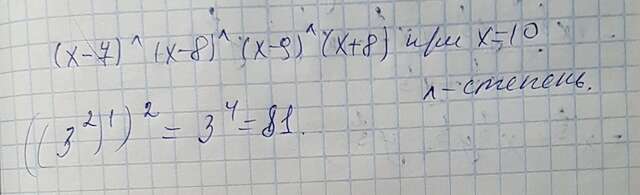 (x-7)^(x-8)^(x-9)^(x+8) при x=10
^-степень.
((3²)¹)² = 3⁴ = 81.